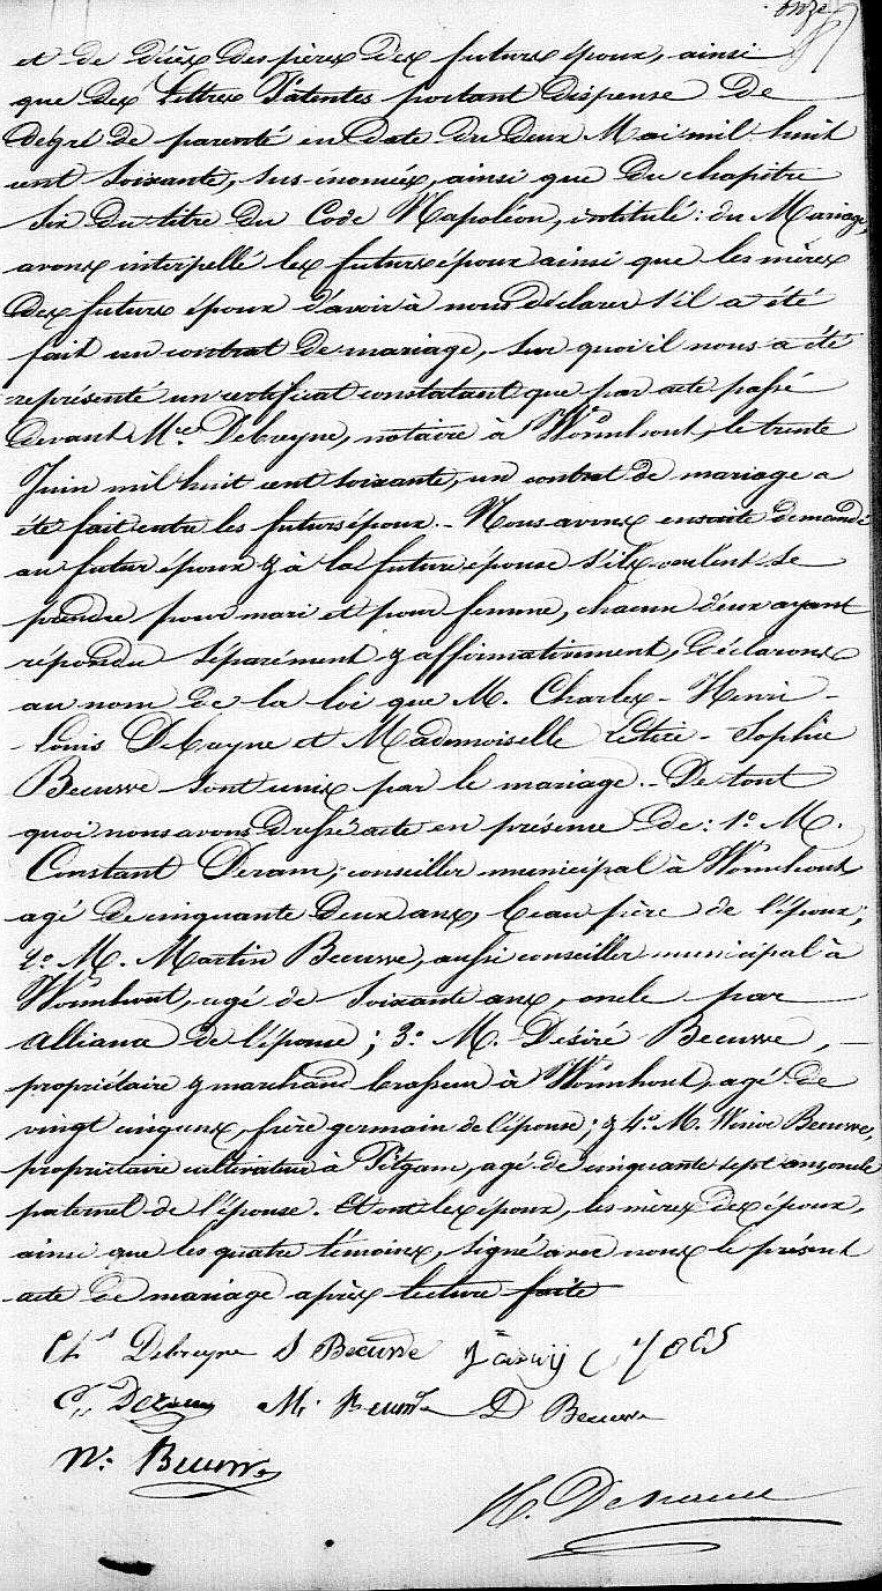 onze
et de décès des pères des futurs époux, ainsi
que des Lettres Patentes portant dispense de
dégré de parenté en date du deux Mai mil huit
cent soixante, sus-énoncées, ainsi que du chapitre
six du titre du Code Napoléon, intitulé: du Mariage,
avons interpellé les futurs époux ainsi que les mères
des futurs époux d'avoir à nous déclarer s'il a été
fait un contrat de mariage, sur quoi il nous a été
représenté un certificat constatant que par acte passé
devant Me. Debreyne, notaire à Wormhout, le trente
Juin mil huit cent soixante, un contrat de mariage a
été fait entre les futurs époux. - Nous avons ensuite demandé
au futur époux & à la future épouse s'ils veulent se
prendre pour mari et pour femme, chacun d'eux ayant
répondu séparément & affirmativement, déclarons
au nom de la loi que M. Charles - Henri -
- Louis Debreyne et Mademoiselle - Sophie
Becuwe sont unis par le mariage. - De tout
quoi nous avons dressé acte en présence de: 1º. M.
Constant Deram, conseiller municipal à Wormhout,
agé de cinquante deux ans, beau frère de l'époux;
2º. M. Martin Becuwe, aussi conseiller municipal à
Wormhout, agé de soixante ans, oncle par
alliance de l'épouse; 3º. M. Désiré Becuwe,
propriétaire & marchand brasseur à Wormhout, agé de
vingt cinq ans, frère germain de l'épouse; & 4º. M. Winoc Becuwe,
propriétaire cultivateur à Pitgam, agé de cinquante sept ans, oncle
paternel de l'épouse. Et ont les époux, les mères des époux,
ainsi que les quatre témoins, signé avec nous le présent
acte de mariage après lecture faite
Chs Debreyne S Becuwe
Ct. Deram M. Becuwe D Becuwe
W. Becuwe